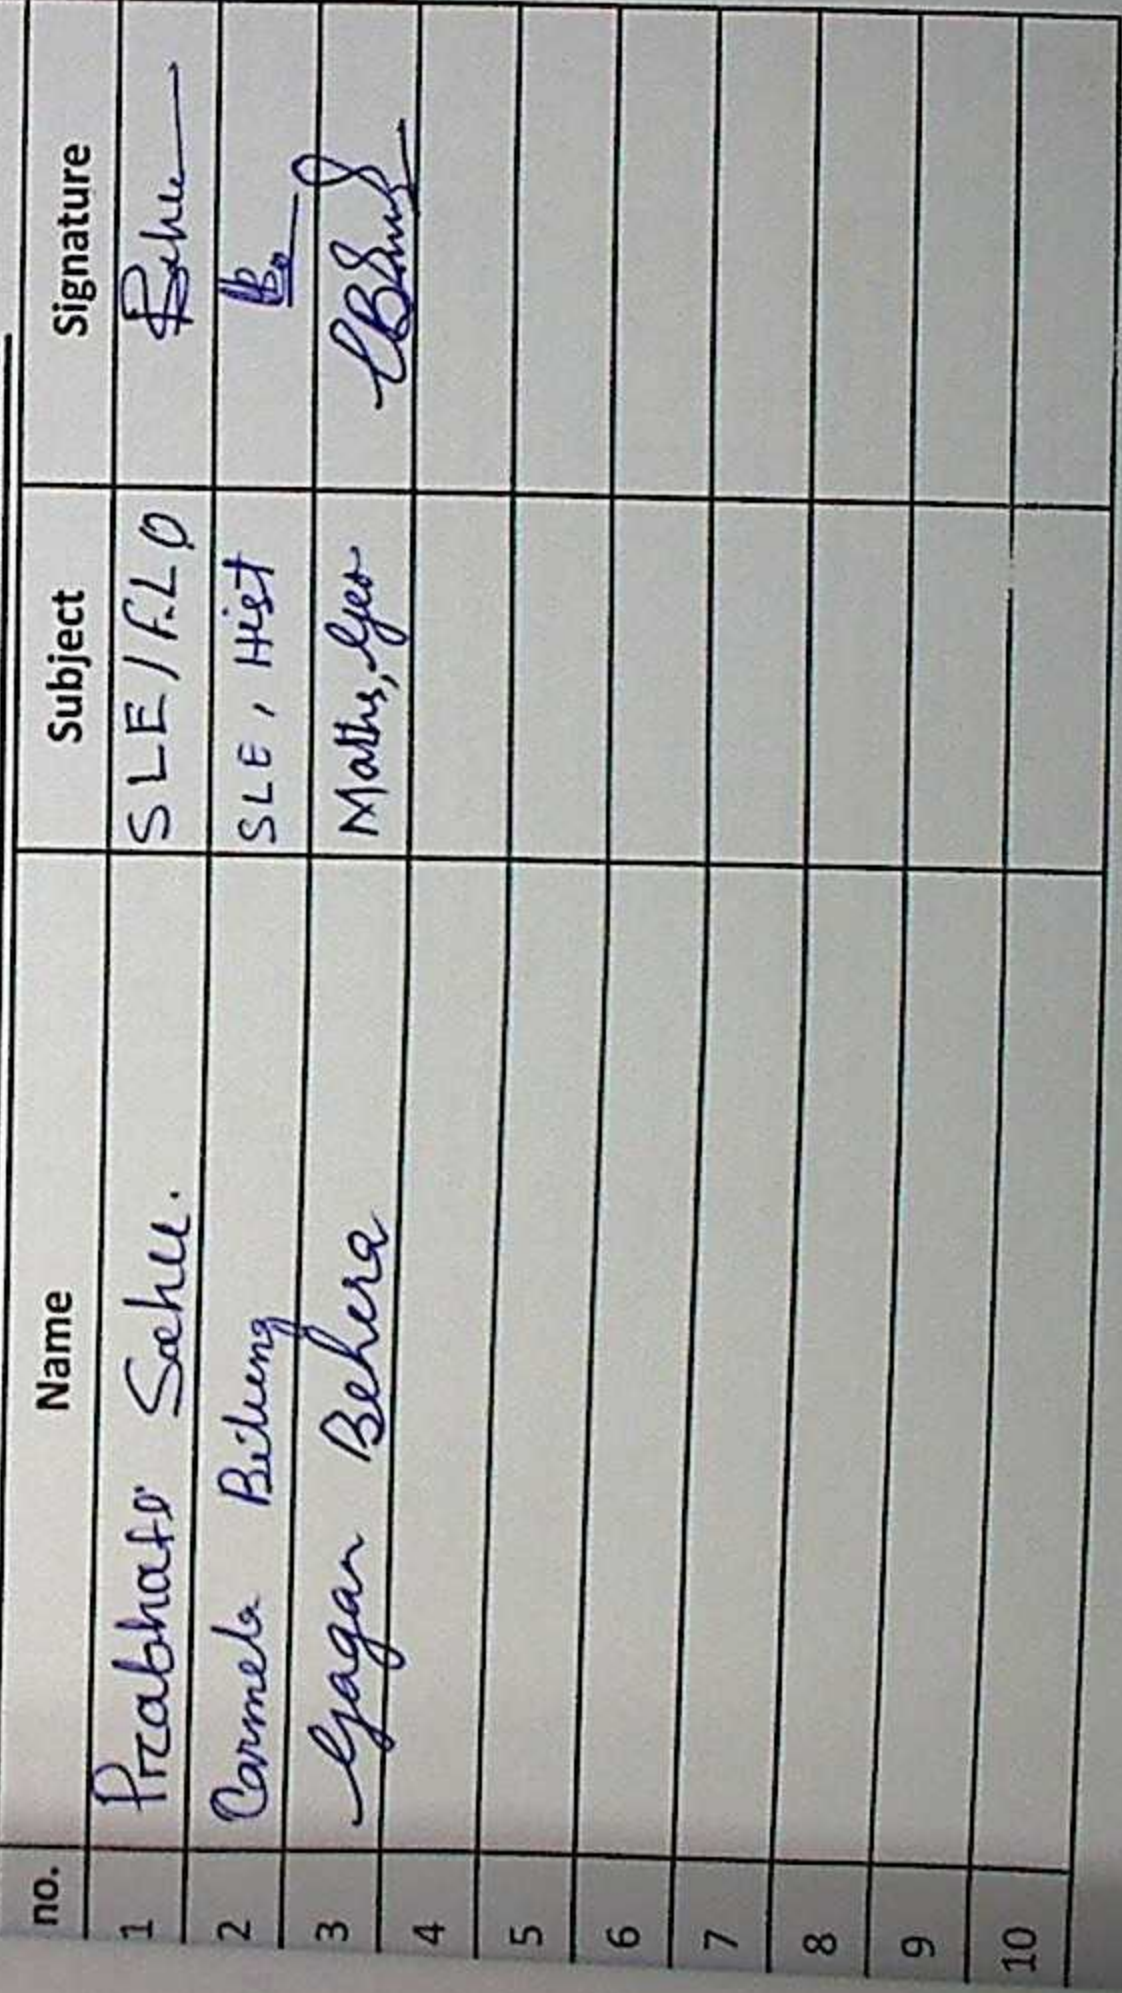 no. Name Subject Signature
1 Prabhati Sahu. SLE/F.L.O
2 Carmela Bilung SLE, Hist
3 Gagan Behera Maths, Geo
4
5
6
7
8
9
10